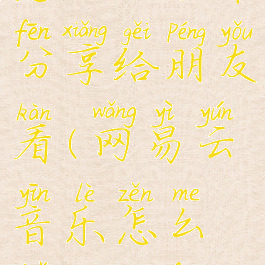 fēn xiǎng gěi péng yǒu
分享给朋友
kàn wǎng yì yún
看(网易云
yīn lè zěn me
音乐怎么